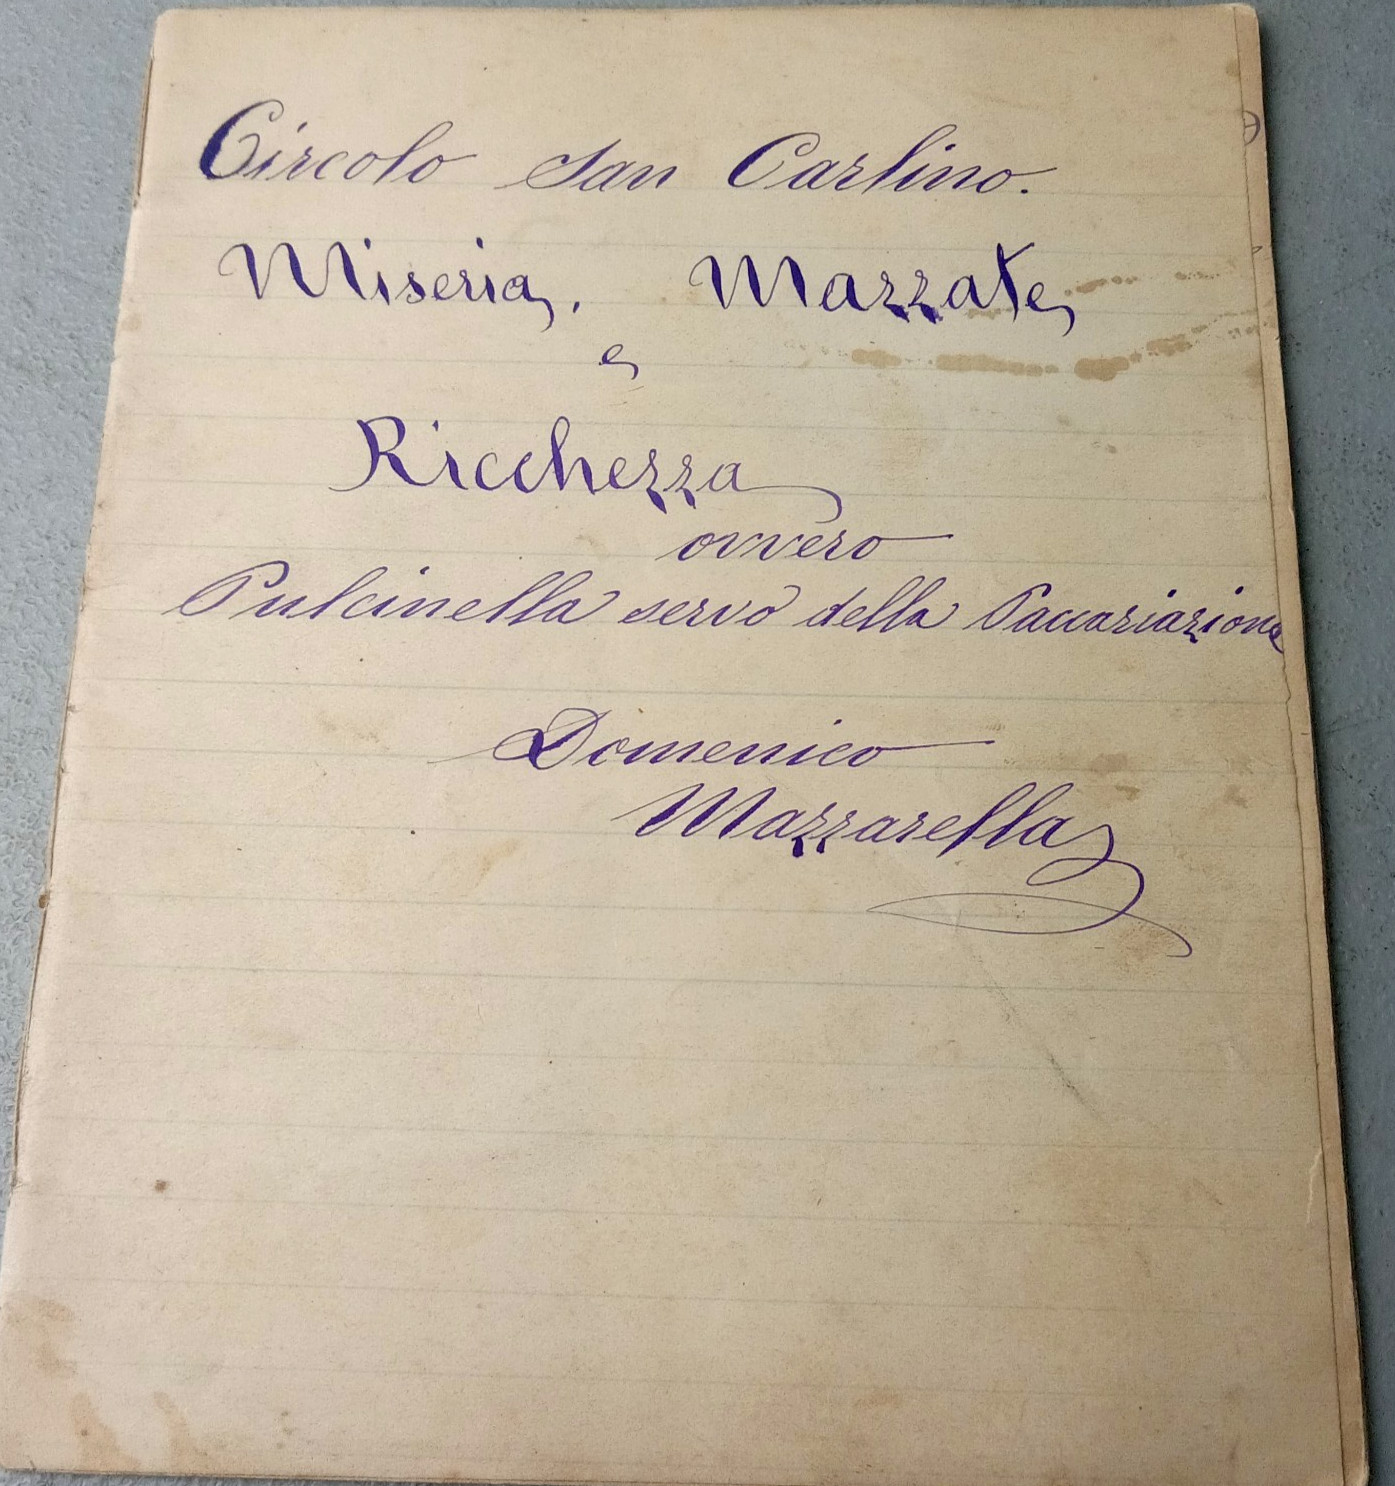 Circolo San Carlino.
Miseria, Mazzate
e
Ricchezza
ovvero
Pulcinella servo della Paccariazione
Domenico
Mazzarella